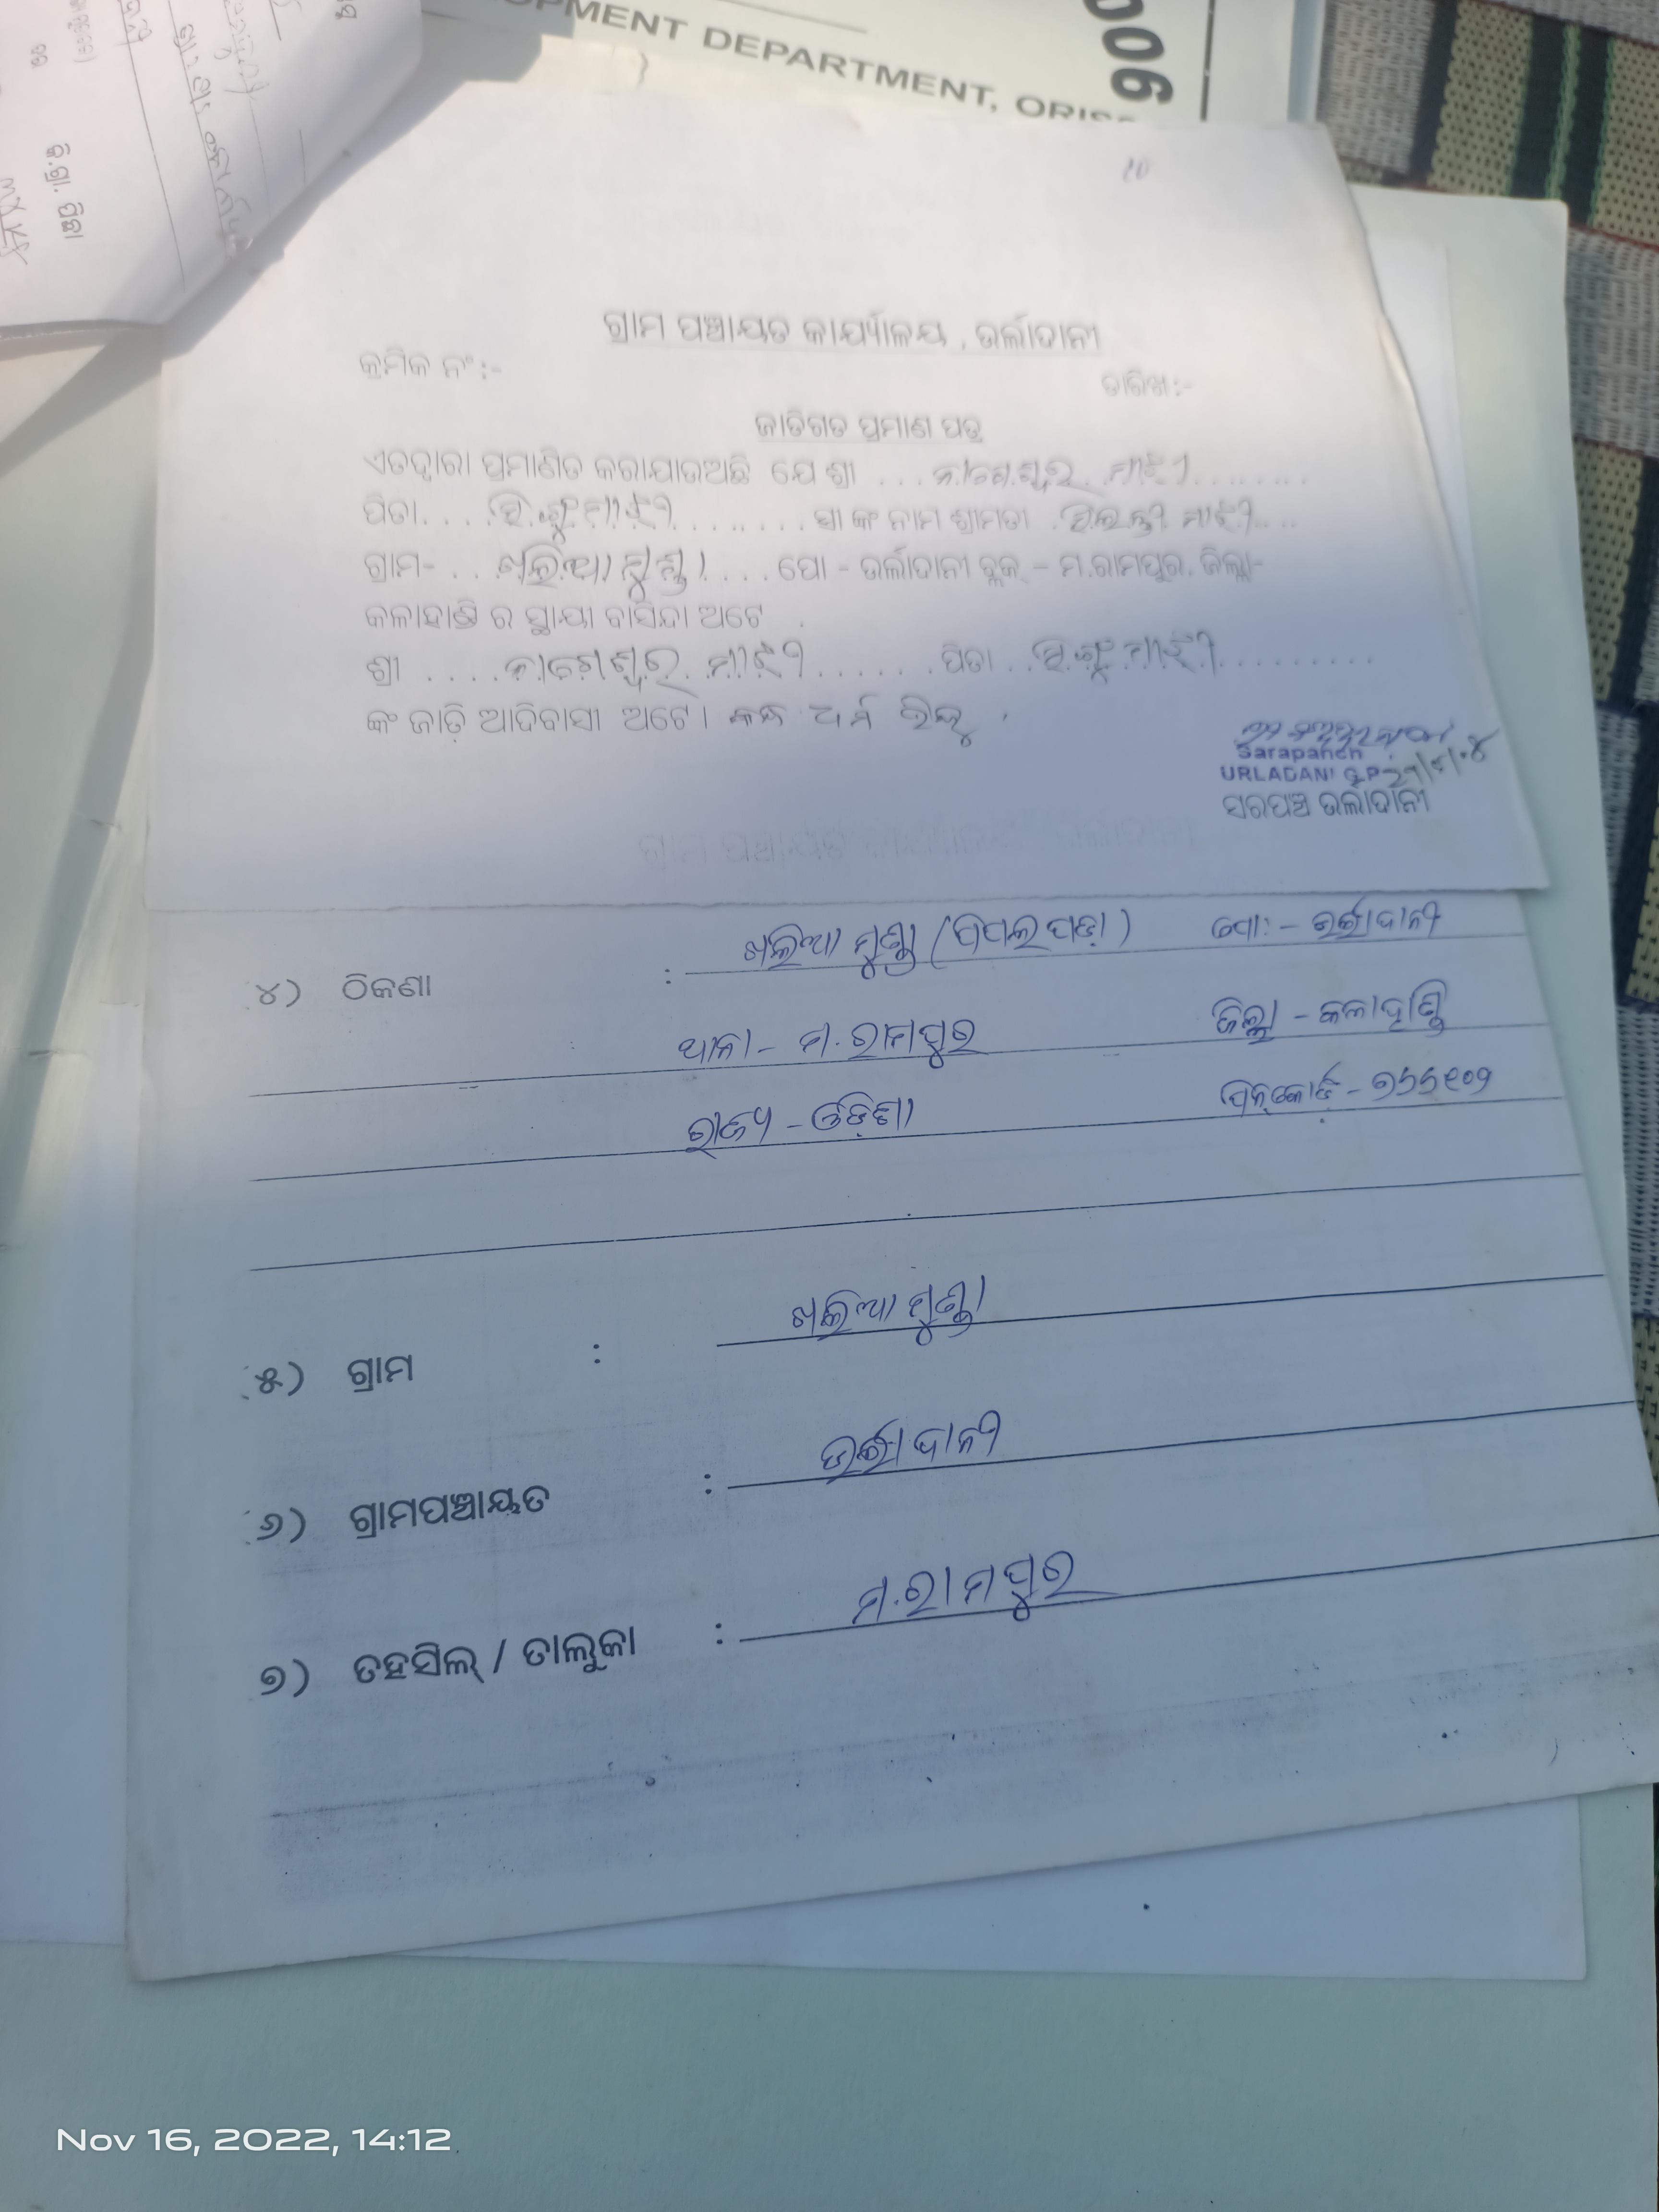 MENT DEPARTMENT, ORISS
006
୧୦
ଗ୍ରାମ ପଞ୍ଚାୟତ କାର୍ଯ୍ୟାଳୟ , ଉର୍ଲାଦାନୀ
କ୍ରମିକ ନଂ :-
ତାରିଖ :-
ଜାତିଗତ ପ୍ରମାଣ ପତ୍ର
ଏତଦ୍ୱାରା ପ୍ରମାଣିତ କରାଯାଉଅଛି ଯେ ଶ୍ରୀ ... ନାଗେଶ୍ୱର ମାଝୀ ........
ପିତା.... ମାଝୀ ........ ସ୍ତ୍ରୀ ଙ୍କ ନାମ ଶ୍ରୀମତୀ . ମାଝୀ ....
ଗ୍ରାମ- .. ଖଲିଆମୁଣ୍ଡା .... ପୋ - ଉର୍ଲାଦାନୀ ବ୍ଲକ୍ - ମ.ରାମପୁର. ଜିଲ୍ଲା-
କଳାହାଣ୍ଡି ର ସ୍ଥାୟୀ ବାସିନ୍ଦା ଅଟେ .
ଶ୍ରୀ .... ନାଗେଶ୍ୱର ମାଝୀ ...... ପିତା .. ମାଝୀ ..........
ଙ୍କ ଜାତି ଆଦିବାସୀ ଅଟେ। କନ୍ଧ ଧର୍ମ ହିନ୍ଦୁ
Sarapanch
URLADANI G.P
ସରପଞ୍ଚ ଉର୍ଲାଦାନୀ
୪) ଠିକଣା : ଖଲିଆମୁଣ୍ଡା (ପିପଲପଡ଼ା) ପୋ: - ଉର୍ଲାଦାନୀ
ଥାନା - ମ.ରାମପୁର ଜିଲ୍ଲା - କଳାହାଣ୍ଡି
ରାଜ୍ୟ - ଓଡ଼ିଶା ପିନ୍‌କୋଡ଼ - ୭୬୬୧୦୨
୫) ଗ୍ରାମ : ଖଲିଆମୁଣ୍ଡା
୬) ଗ୍ରାମପଞ୍ଚାୟତ : ଉର୍ଲାଦାନୀ
୭) ତହସିଲ୍ / ତାଲୁକା : ମ.ରାମପୁର
Nov 16, 2022, 14:12